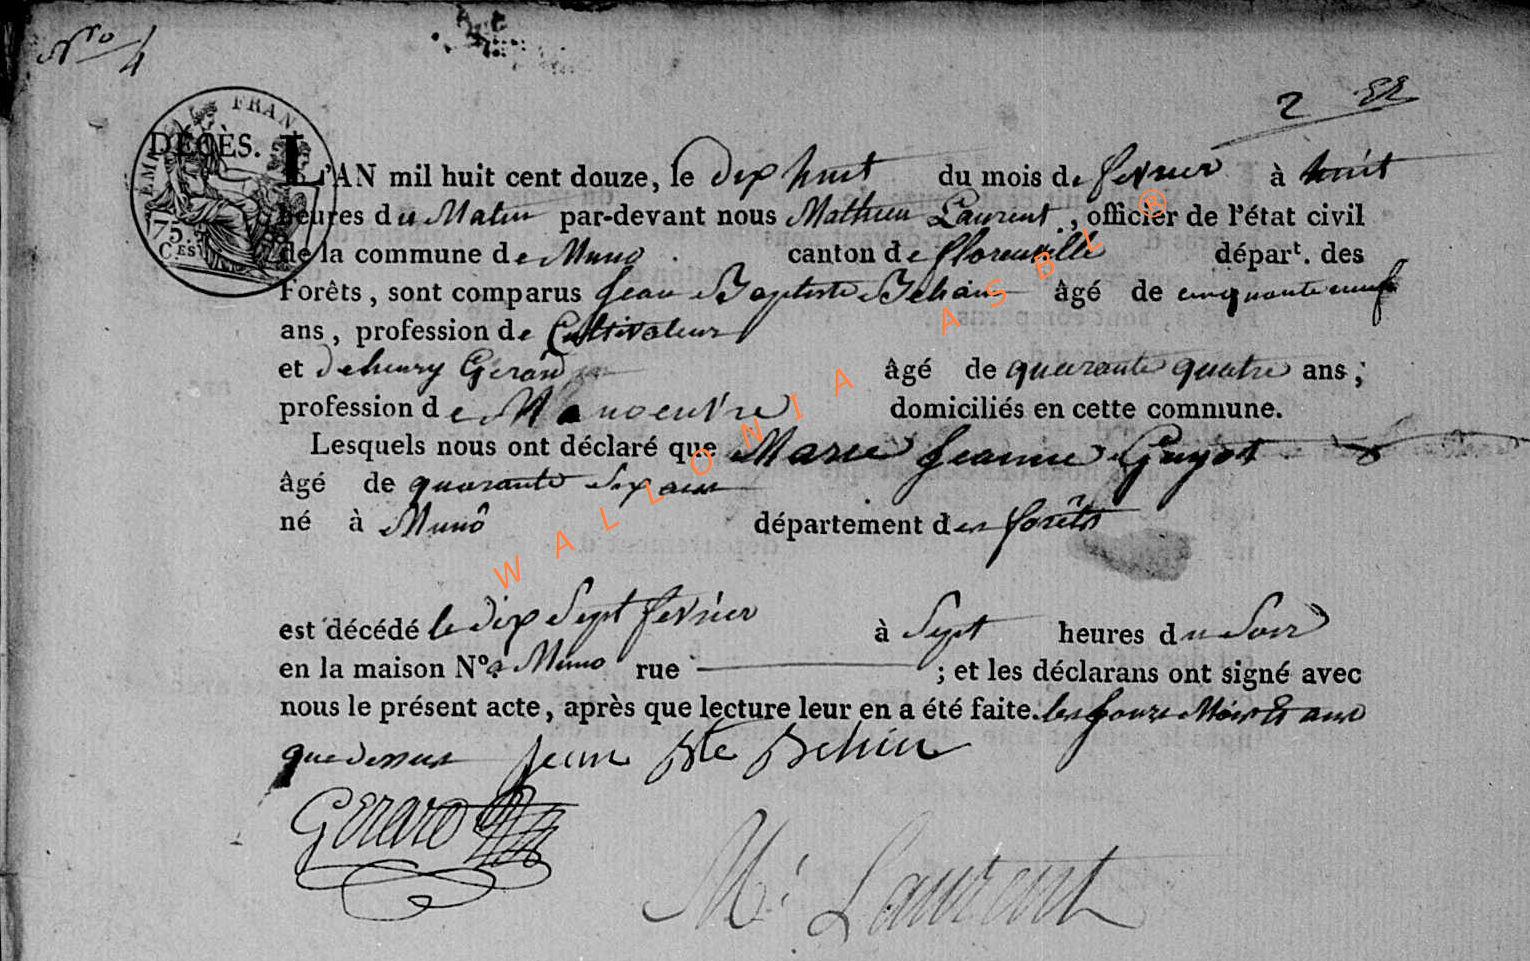 Nro 4
2
EMPI FRAN
75.
C.ES
DÉCÈS.
L'AN mil huit cent douze, le dix huit du mois de fevrier à huit
heures du Matin par-devant nous Mathieu Laurent, officier de l'état civil
de la commune de Muno canton de florenville dépar.t des
Forêts, sont comparus Jean Baptiste Behin âgé de cinquante neuf
ans, profession de Cultivateur
et de henry Gerard âgé de quarante quatre ans;
profession de Manoeuvre domiciliés en cette commune.
Lesquels nous ont déclaré que Marie Jeanne Guyot
âgé de quarante six ans
né à Munô département des forêts
est décédé le dix Sept fevrier à Sept heures du Soir
en la maison N.º à Muno rue ; et les déclarans ont signé avec
nous le présent acte, après que lecture leur en a été faite. les jours Mois Et an
que dessus Jean Bte Behin
Gerard
M: Laurent
WALLONIA ASBL ®